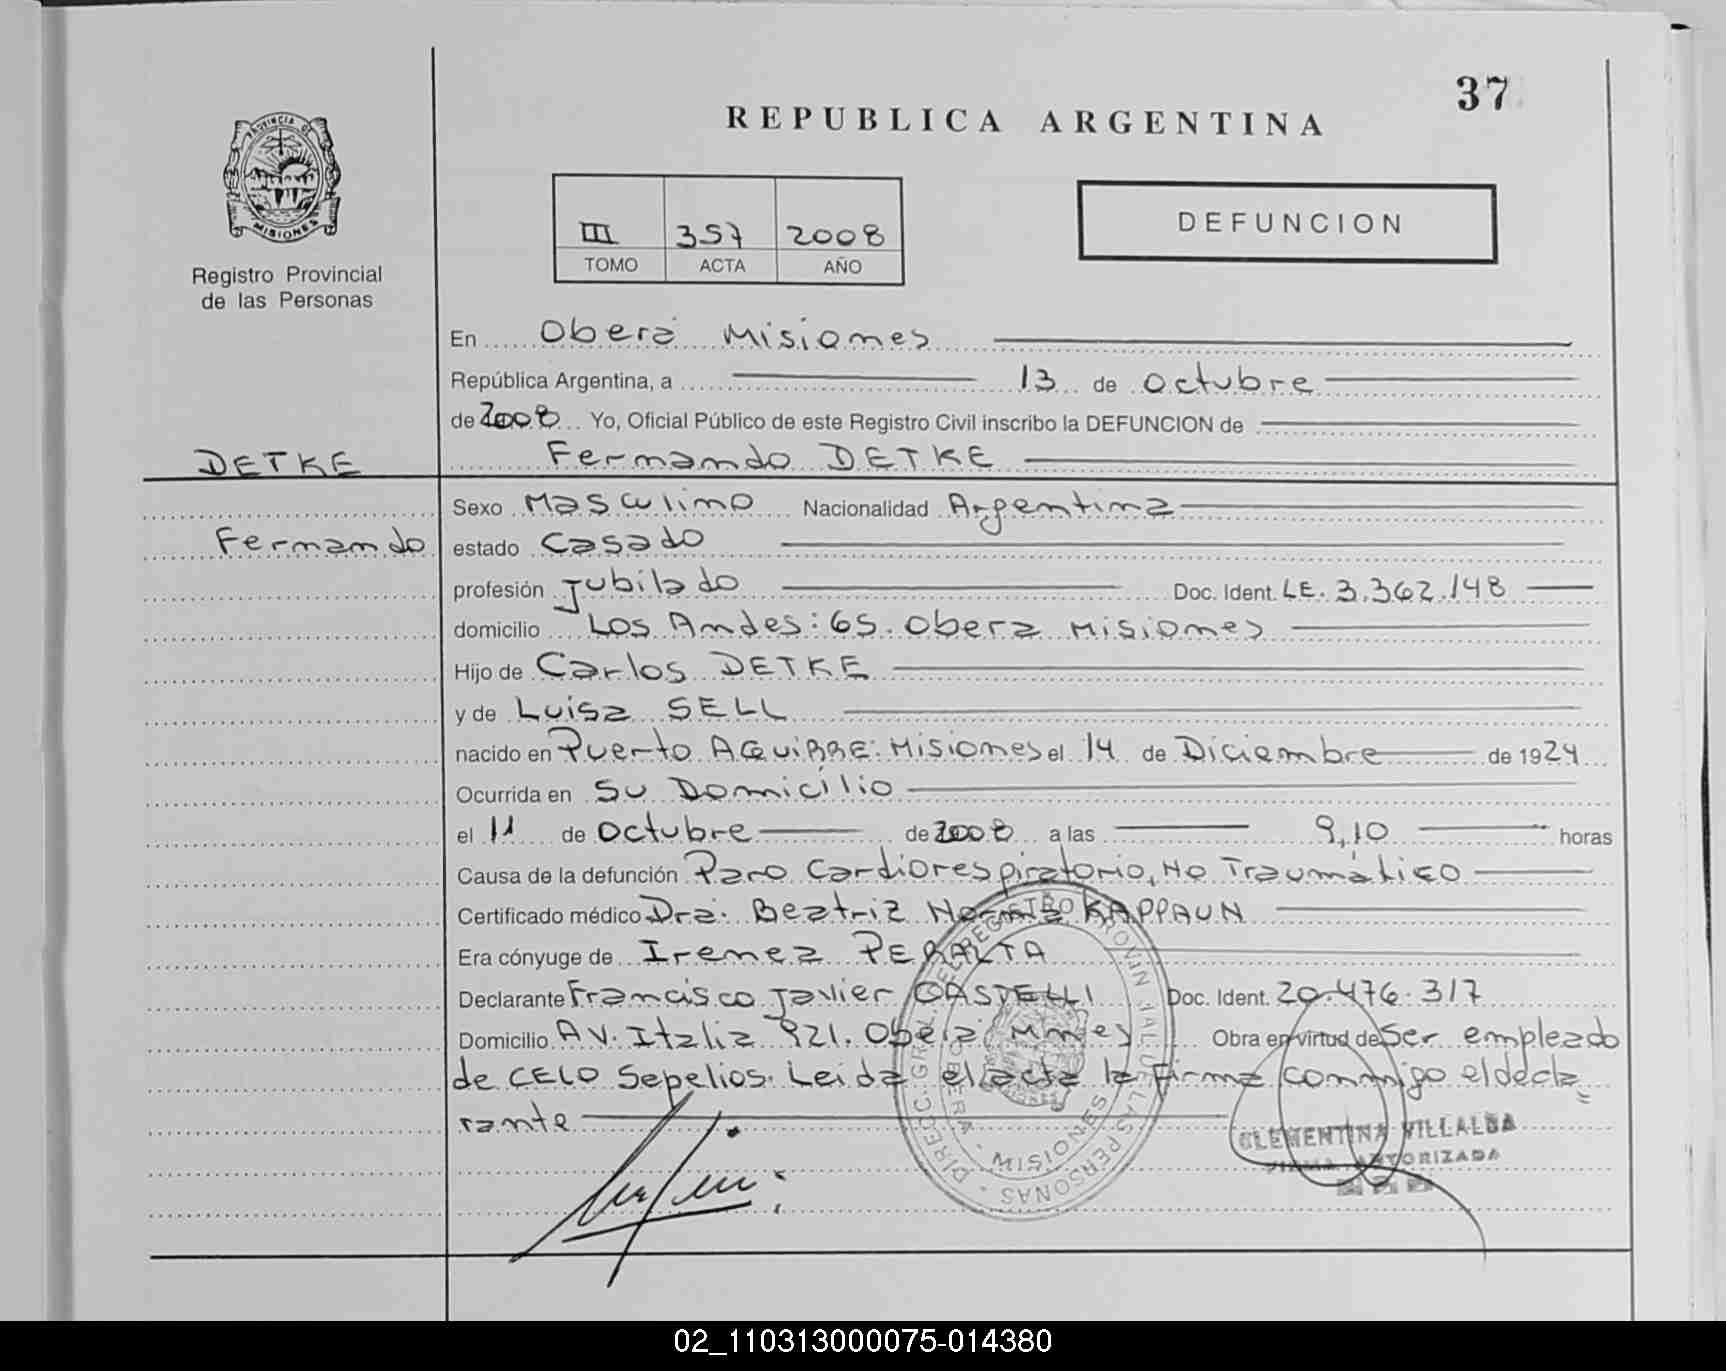 37
REPUBLICA ARGENTINA
PROVINCIA DE
MISIONES
Registro Provincial
de las Personas
III 357 2008
TOMO ACTA AÑO
DEFUNCION
En Oberá Misiones
República Argentina, a 13 de Octubre
de 2008 Yo, Oficial Público de este Registro Civil inscribo la DEFUNCION de
DETKE Fernando DETKE
Sexo Masculino Nacionalidad Argentina
Fernando estado Casado
profesión Jubilado Doc. Ident. LE. 3.362.148
domicilio Los Andes: 65. Obera Misiones
Hijo de Carlos DETKE
y de Luisa SELL
nacido en Puerto AGUIRRE. Misiones el 14 de Diciembre de 1924
Ocurrida en Su Domicilio
el 11 de Octubre de 2008 a las 9,10 horas
Causa de la defunción Paro Cardiorespiratorio, No Traumático
Certificado médico Dra. Beatriz Norma KAPPAUN
Era cónyuge de Irenea PERALTA
Declarante Francisco Javier CASTELLI Doc. Ident. 20.476.317
Domicilio AV. Italia 921. Oberá Mnes Obra en virtud de Ser empleado
de CELO Sepelios. Leida el acta la firma conmigo el decla
rante
DIRECC. GRAL. DEL REGISTRO PROVINCIAL DE LAS PERSONAS
OBERA - MISIONES
CLEMENTINA VILLALBA
FIRMA AUTORIZADA
02_110313000075-014380